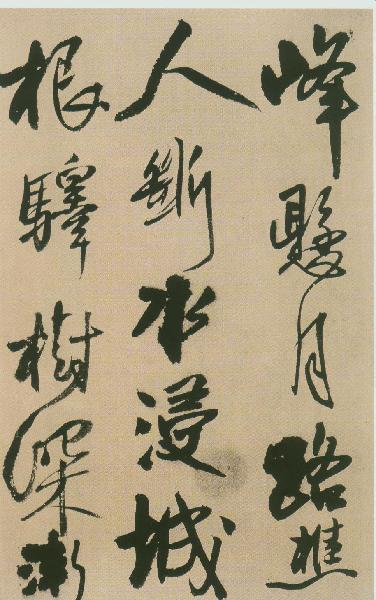 峰懸月路樵
人斷水浸城
根驛樹深